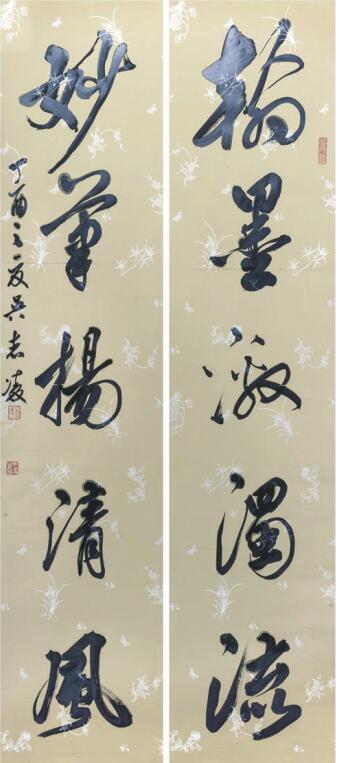 翰墨激濁流
妙筆揚清風
丁酉之夏吴志凌